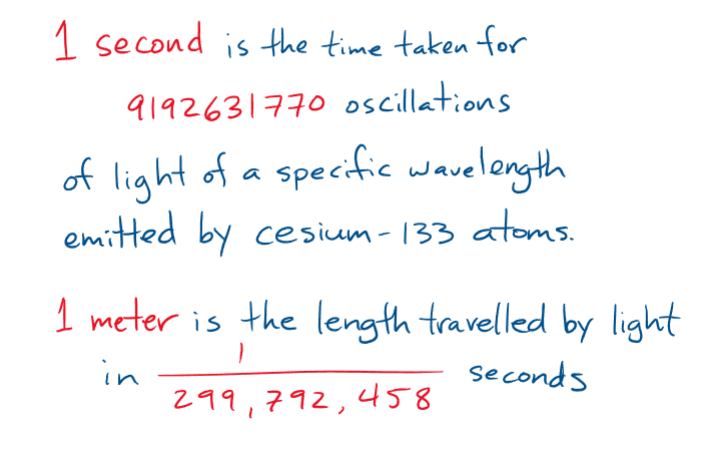 1 second is the time taken for
9192631770 oscillations
of light of a specific wavelength
emitted by cesium-133 atoms.
1 meter is the length travelled by light
in 1 / 299,792,458 seconds